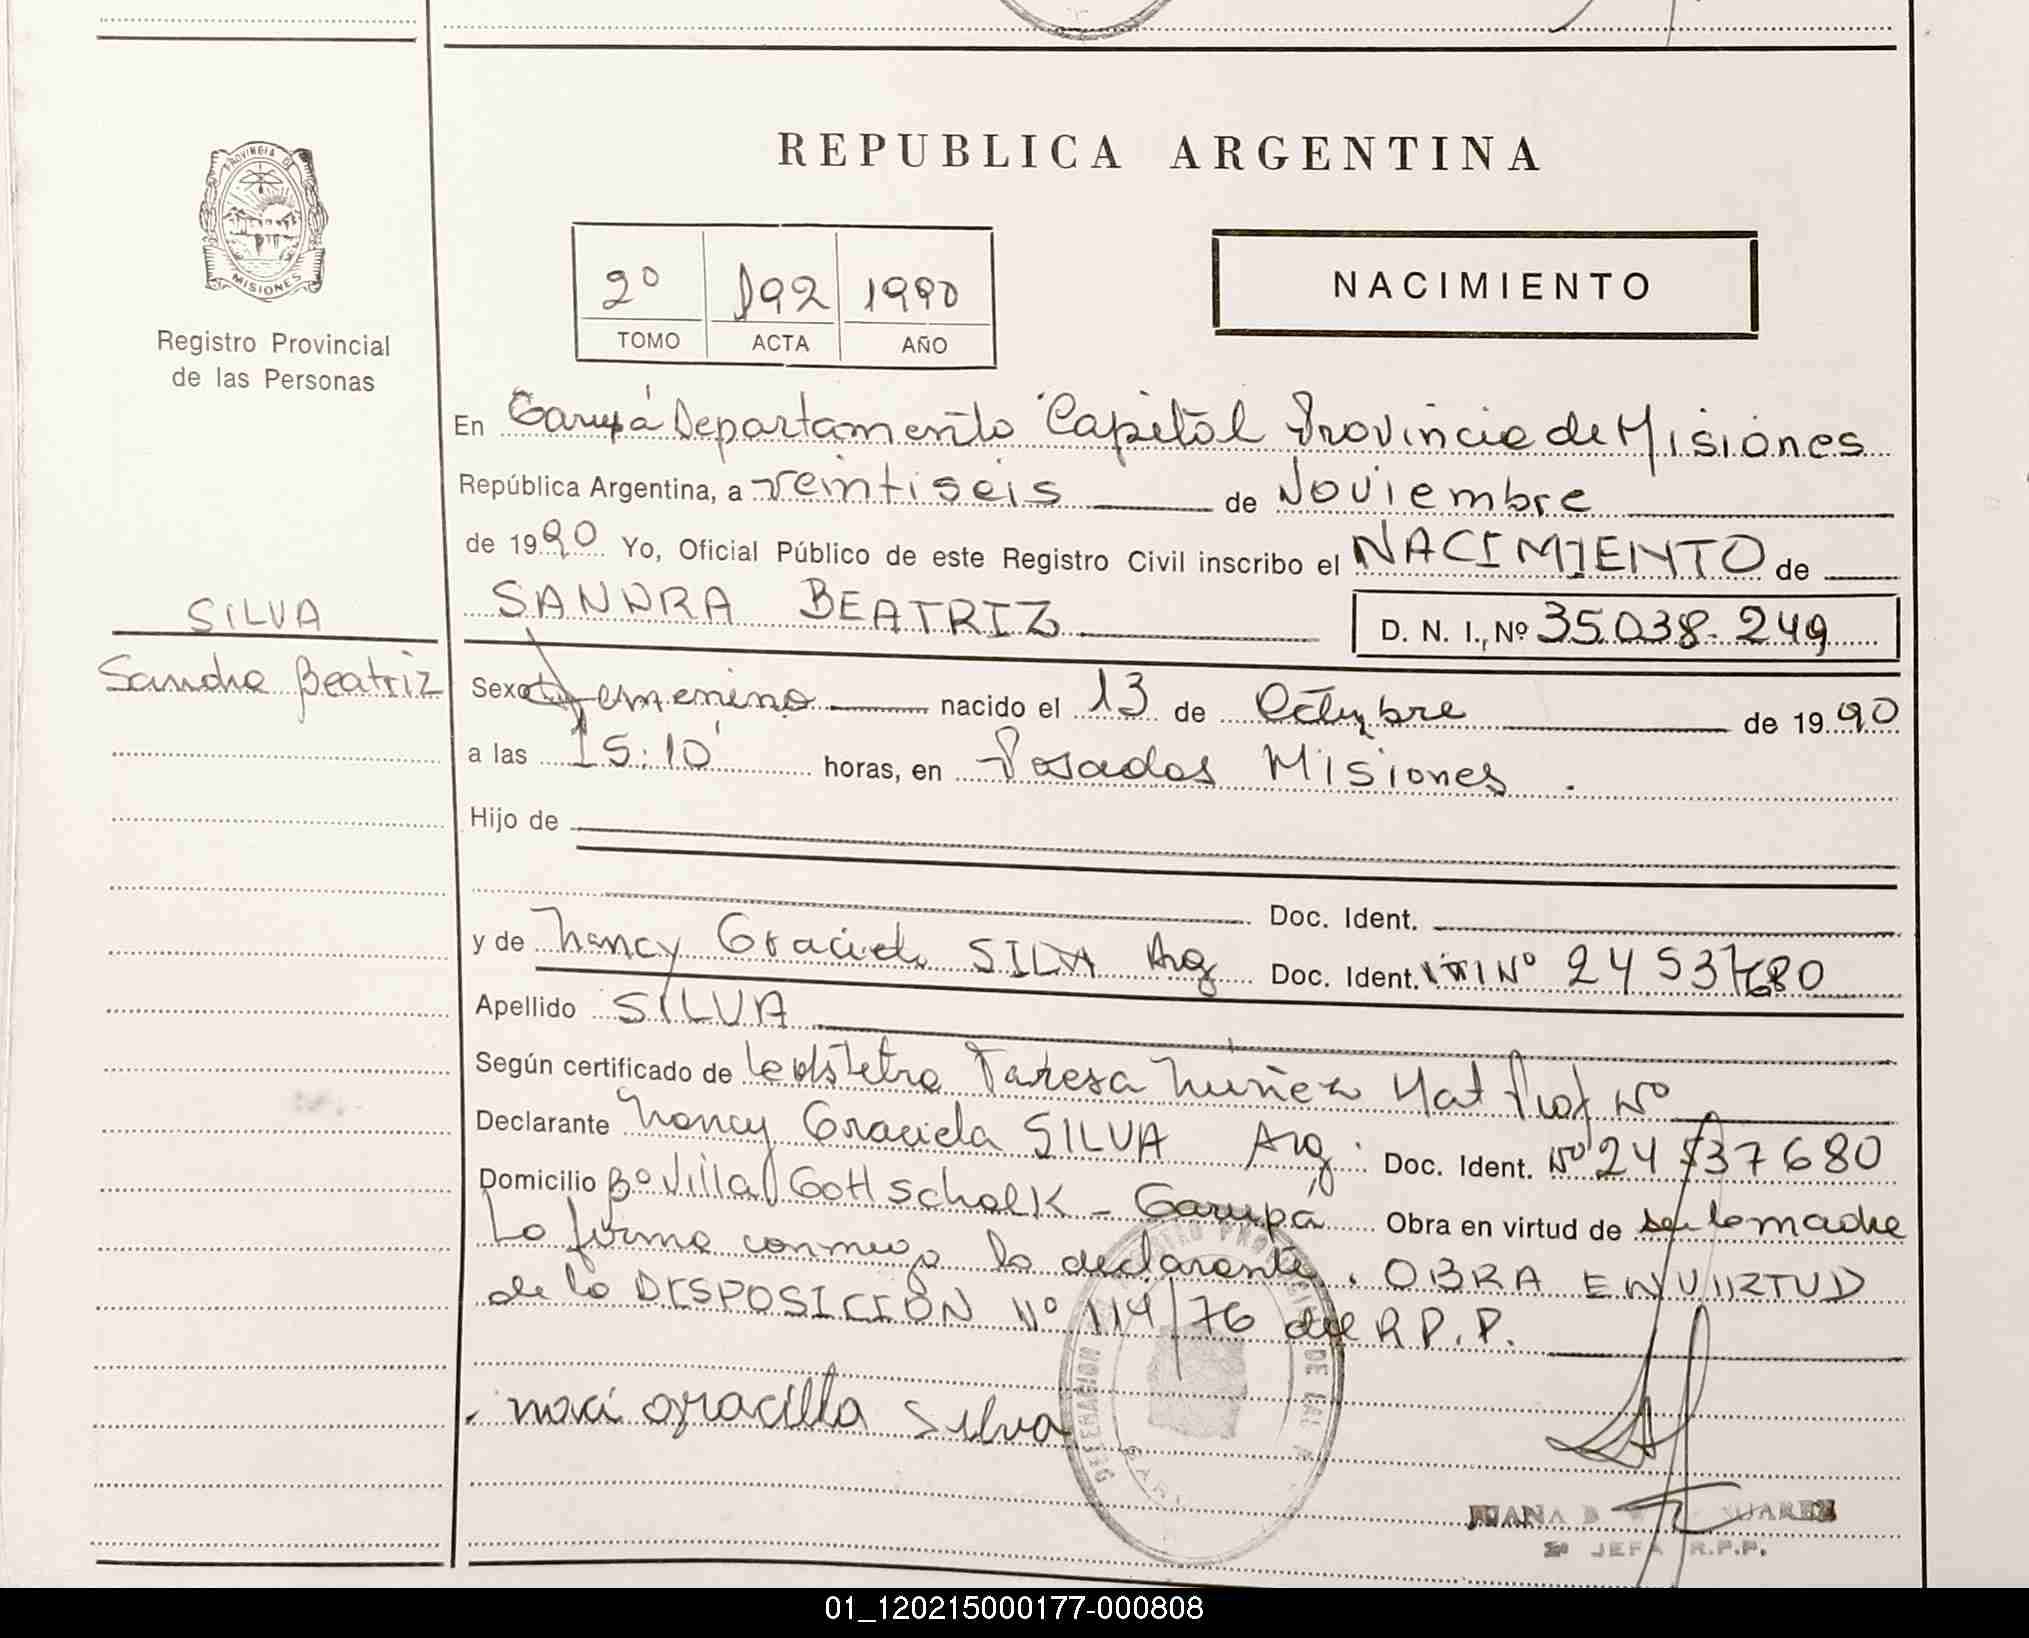 REPUBLICA ARGENTINA
PROVINCIA DE
MISIONES
Registro Provincial
de las Personas
2º 192 1990
TOMO ACTA AÑO
NACIMIENTO
En Garupá Departamento Capital Provincia de Misiones
República Argentina, a veintiseis de Noviembre
de 1990 Yo, Oficial Público de este Registro Civil inscribo el NACIMIENTO de
SANDRA BEATRIZ D. N. I., Nº 35.038.249
SILVA
Sandra Beatriz
Sexo femenino nacido el 13 de Octubre de 1990
a las 15:10 horas, en Posadas Misiones.
Hijo de
Doc. Ident.
y de Nancy Graciela SILVA Arg Doc. Ident. Nº 24537680
Apellido SILVA
Según certificado de Teresa Nuñez Mat Prof Nº
Declarante Nancy Graciela SILVA Arg. Doc. Ident. Nº 24537680
Domicilio Bº Villa Gottschalk - Garupá Obra en virtud de ser la madre
La firma conmigo la declarante. OBRA EN VIRTUD
de la DISPOSICIÓN Nº 114/76 del R.P.P.
Graciella Silva
JUANA D SUAREZ
JEFA R.P.P.
01_120215000177-000808